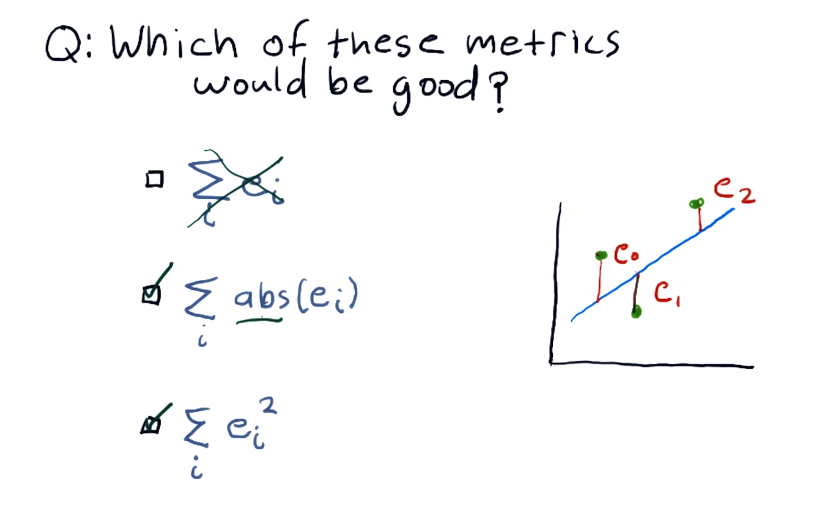 Q: Which of these metrics
would be good?
Σ e_i
i
Σ abs(e_i)
i
Σ e_i²
i
e₂
e₀
e₁